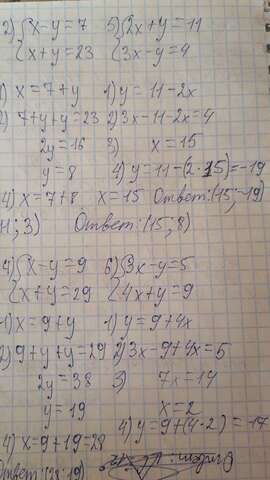 2) {x-y=7 5) {2x+y=11
{x+y=23 {3x-y=4
1) x=7+y 1) y=11-2x
2) 7+y+y=23 2) 3x-11-2x=4
2y=16 3) x=15
y=8 4) y=11-(2·15)=-19
4) x=7+8 x=15 Ответ: (15;-19)
Ответ: (15;8)
4) {x-y=9 6) {3x-y=5
{x+y=29 {4x+y=9
1) x=9+y 1) y=9+4x
2) 9+y+y=29 2) 3x-9+4x=5
2y=38 3) 7x=14
y=19 x=2
4) x=9+19=28 4) y=9+(4·2)=17
Ответ: (28;19)